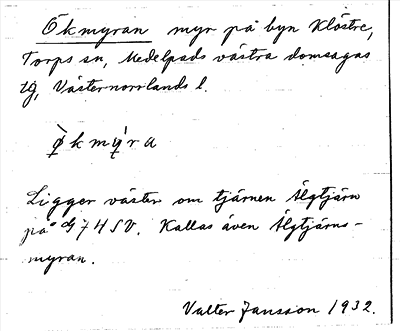 Ökmyran myr på byn Klöstre,
Torps sn, Medelpads västra domsagas
tg, Västernorrlands l.
ø̀kmý̨ra
Ligger väster om tjärnen Älgtjärn
på 74 SV. Kallas även Älgtjärns-
myran.
Valter Jansson 1932.